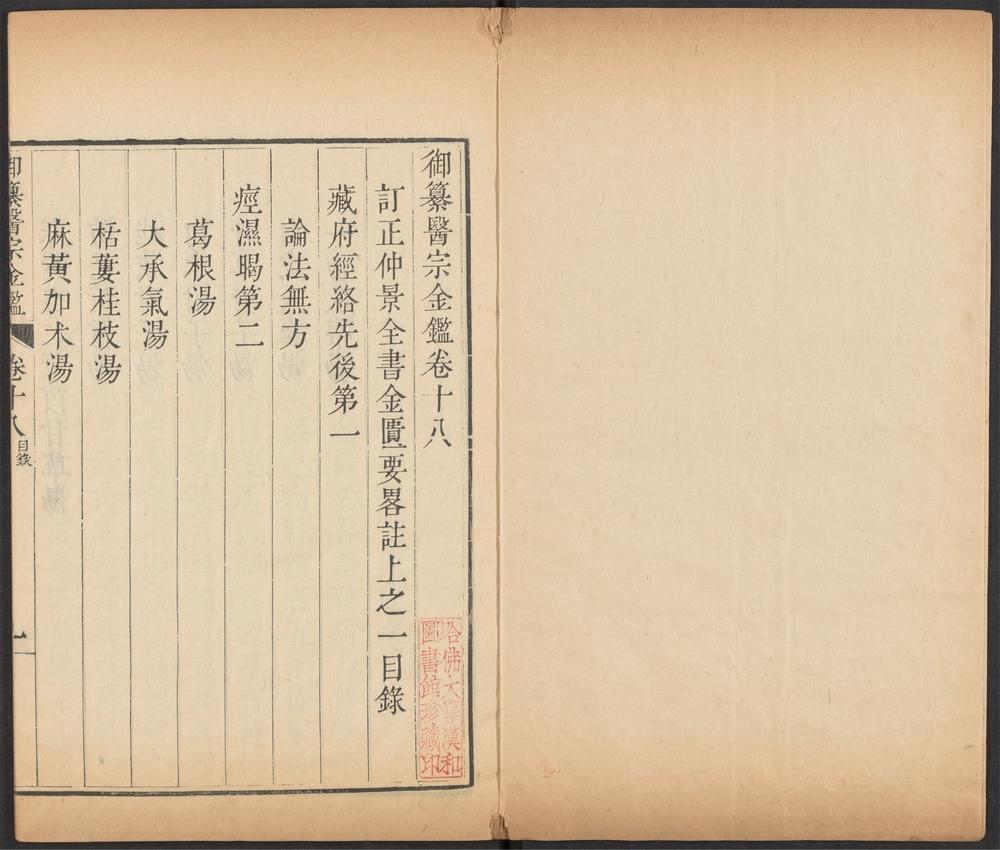 御纂醫宗金鑑卷十八
訂正仲景全書金匱要畧註上之一目錄
藏府經絡先後第一
論法無方
痙濕暍第二
葛根湯
大承氣湯
栝蔞桂枝湯
麻黃加朮湯
御纂醫宗金鑑
卷十八
目錄
一
哈佛大學漢和
圖書館珍藏印